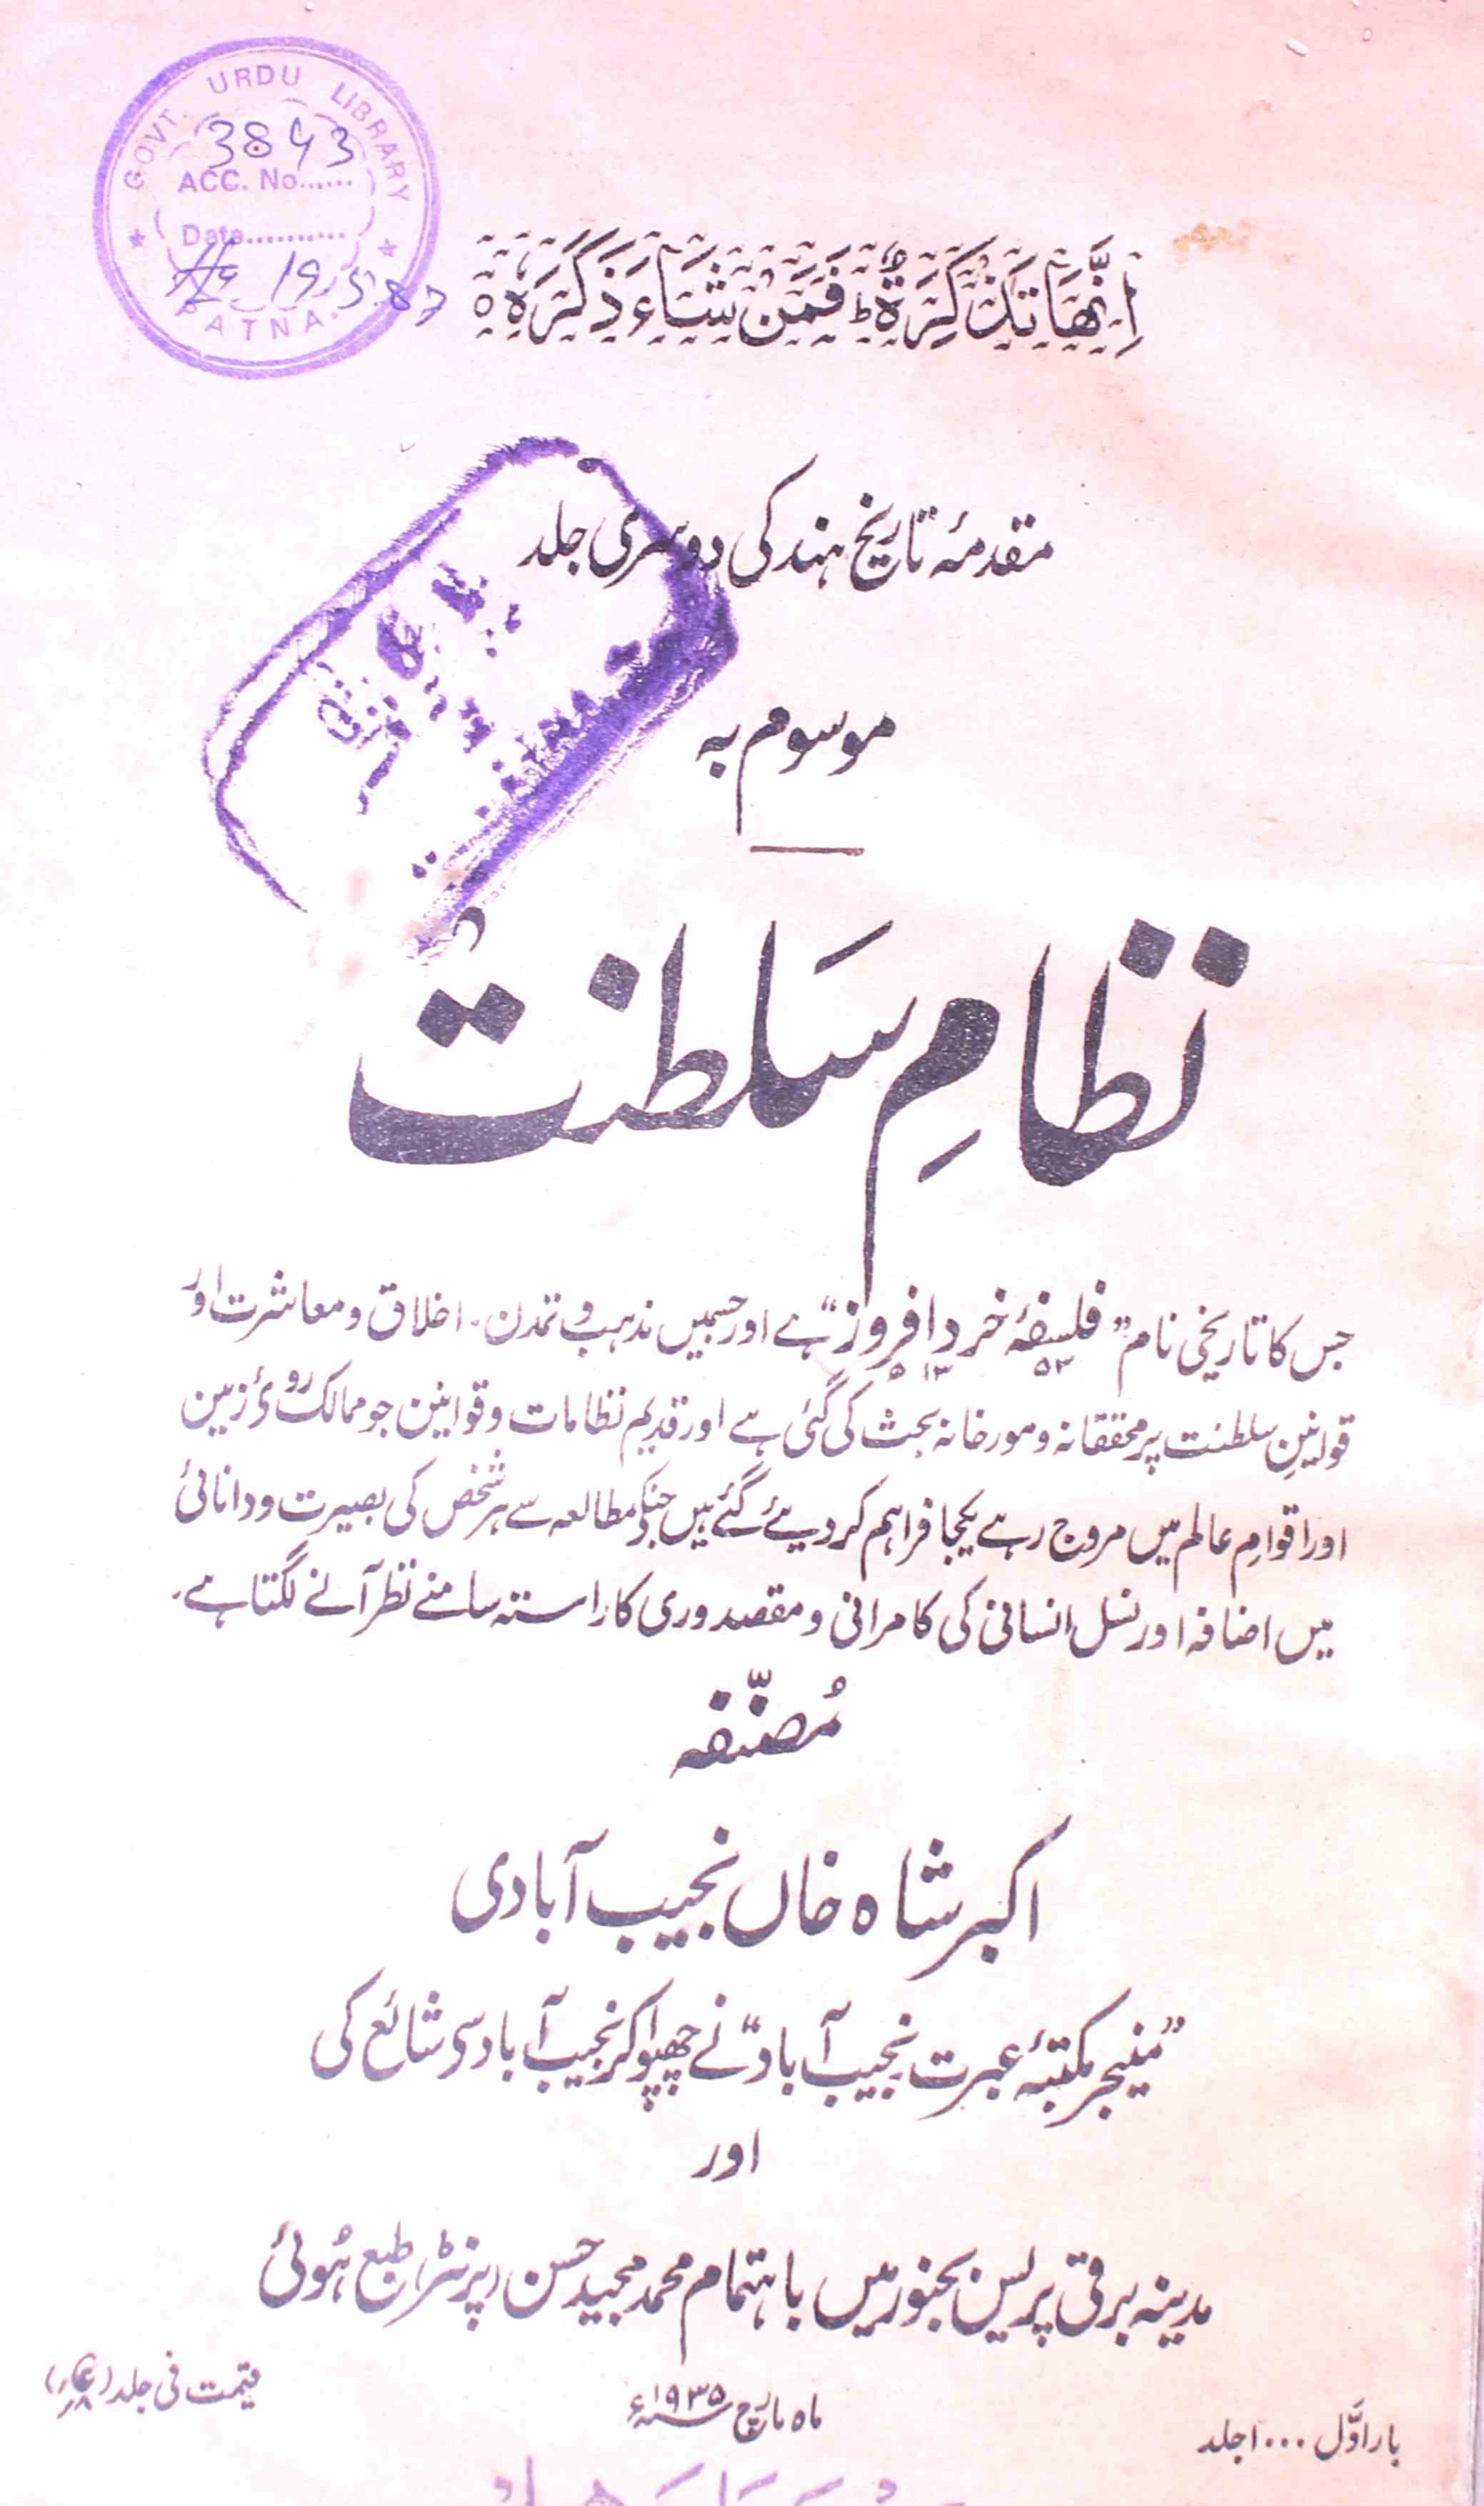 GOVT. URDU LIBRARY
3843
ACC. No......
Date..........
19.5.87
PATNA
اِنَّھَا تَذْکِرَۃٌ ط فَمَنْ شَآءَ ذَکَرَہٗ ہ
مقدمۂ تاریخ ہند کی دوسری جلد
موسوم بہ
نظامِ سَلطنت
جس کا تاریخی نام "فلسفۂ خرد افروز" ہے اور جسمیں مذہب و تمدن۔ اخلاق و معاشرت اور
۱۳ ۵۳ ھ
قوانینِ سلطنت پر محققانہ و مورخانہ بحث کی گئی ہے اور قدیم نظامات و قوانین جو ممالک روئ زمین
اور اقوامِ عالم میں مروج رہے یکجا فراہم کر دیئے گئے ہیں جنکے مطالعہ سے ہر شخص کی بصیرت و دانائی
میں اضافہ اور نسل انسانی کی کامرانی و مقصدوری کا راستہ سامنے نظر آنے لگتا ہے۔
مُصنّفہ
اکبر شاہ خاں نجیب آبادی
"منیجر مکتبۂ عبرت نجیب آباد" نے چھپوا کر نجیب آباد سی شائع کی
اور
مدینہ برقی پریس بجنور میں باہتمام محمد مجید حسن پرنٹر طبع ہُوئی
بار اوَّل ۱۰۰۰ جلد
ماہ مارچ ۱۹۳۵ء
قیمت فی جلد